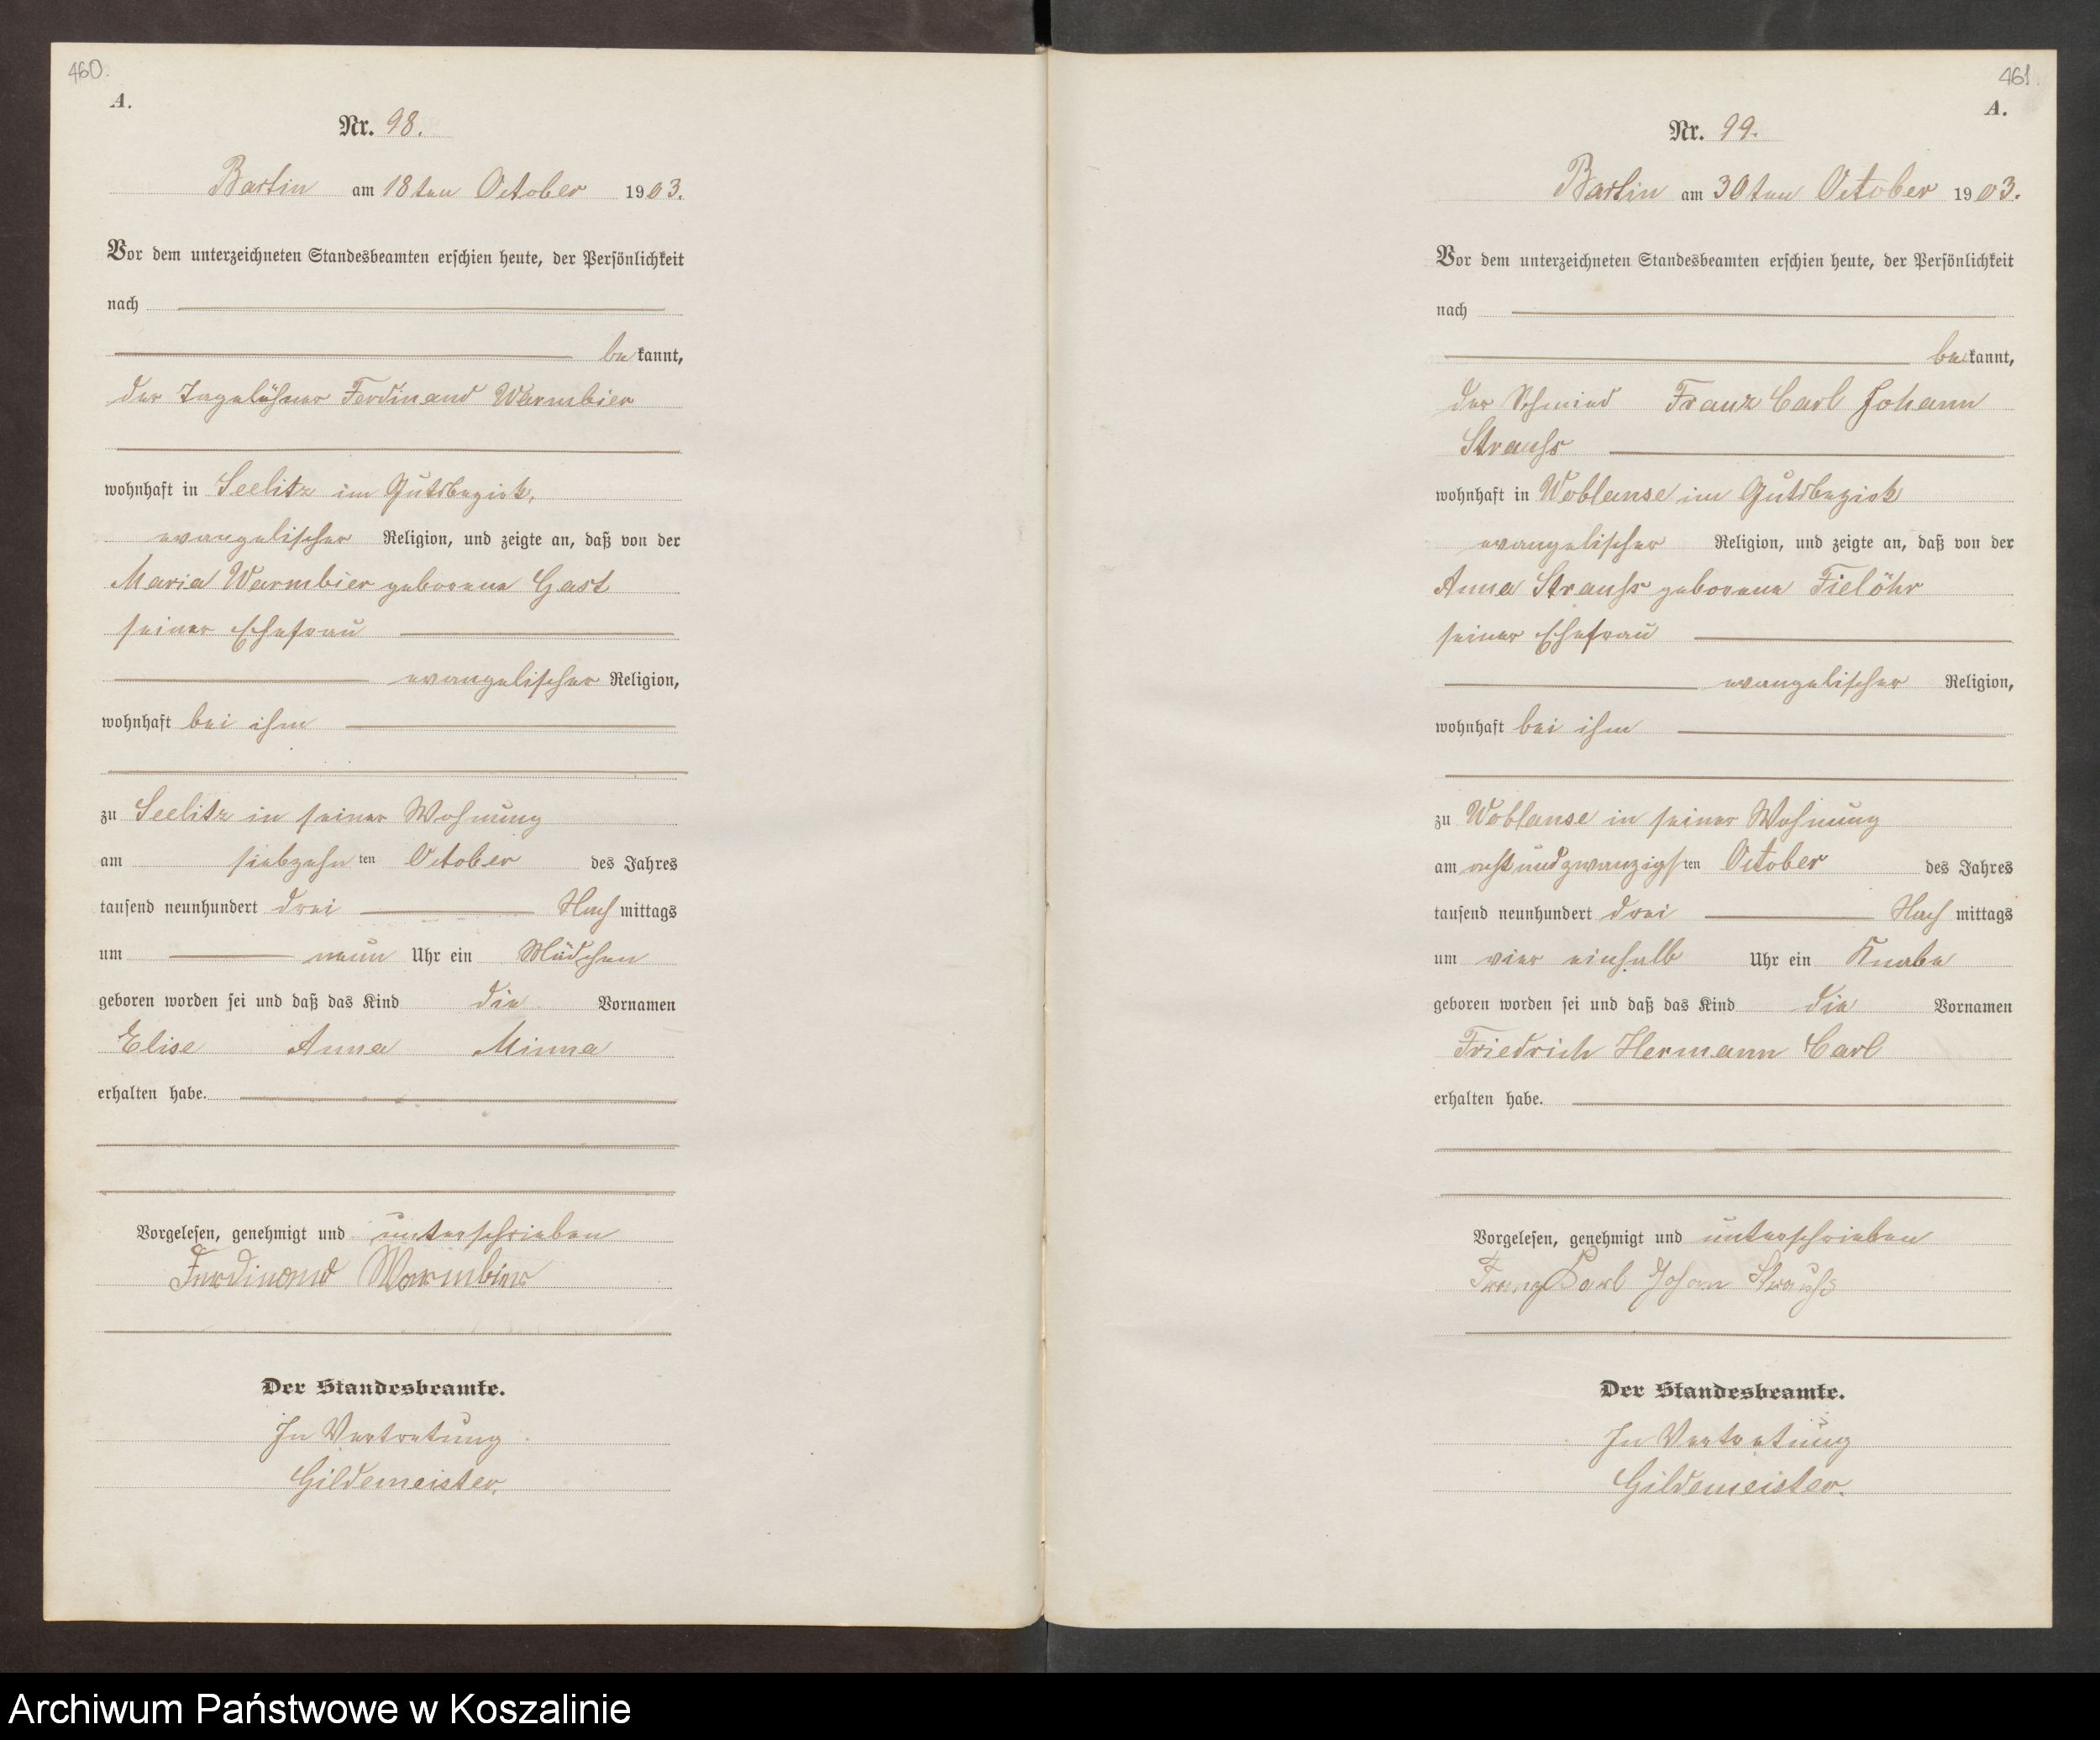 460.
A.
Nr. 98.
Bartin am 18ten October 1903.
Vor dem unterzeichneten Standesbeamten erschien heute, der Persönlichkeit
nach
bekannt,
der Tagelöhner Ferdinand Warmbier
wohnhaft in Seelitz im Gutsbezirk,
evangelischer Religion, und zeigte an, daß von der
Maria Warmbier geborene Gast
seiner Ehefrau
evangelischer Religion,
wohnhaft bei ihm
zu Seelitz in seiner Wohnung
am siebzehnten October des Jahres
tausend neunhundert drei Nachmittags
um neun Uhr ein Mädchen
geboren worden sei und daß das Kind die Vornamen
Elise Anna Minna
erhalten habe.
Vorgelesen, genehmigt und unterschrieben
Ferdinand Warmbier
Der Standesbeamte.
In Vertretung
Gildemeister.
461.
A.
Nr. 99.
Bartin am 30ten October 1903.
Vor dem unterzeichneten Standesbeamten erschien heute, der Persönlichkeit
nach
bekannt,
der Schmied Franz Carl Johann
Strauß
wohnhaft in Woblanse im Gutsbezirk
evangelischer Religion, und zeigte an, daß von der
Anna Strauß geborene Fielöhr
seiner Ehefrau
evangelischer Religion,
wohnhaft bei ihm
zu Woblanse in seiner Wohnung
am achtundzwanzigsten October des Jahres
tausend neunhundert drei Nachmittags
um vier einhalb Uhr ein Knabe
geboren worden sei und daß das Kind die Vornamen
Friedrich Hermann Carl
erhalten habe.
Vorgelesen, genehmigt und unterschrieben
Franz Carl Johan Strauß
Der Standesbeamte.
In Vertretung
Gildemeister.
Archiwum Państwowe w Koszalinie